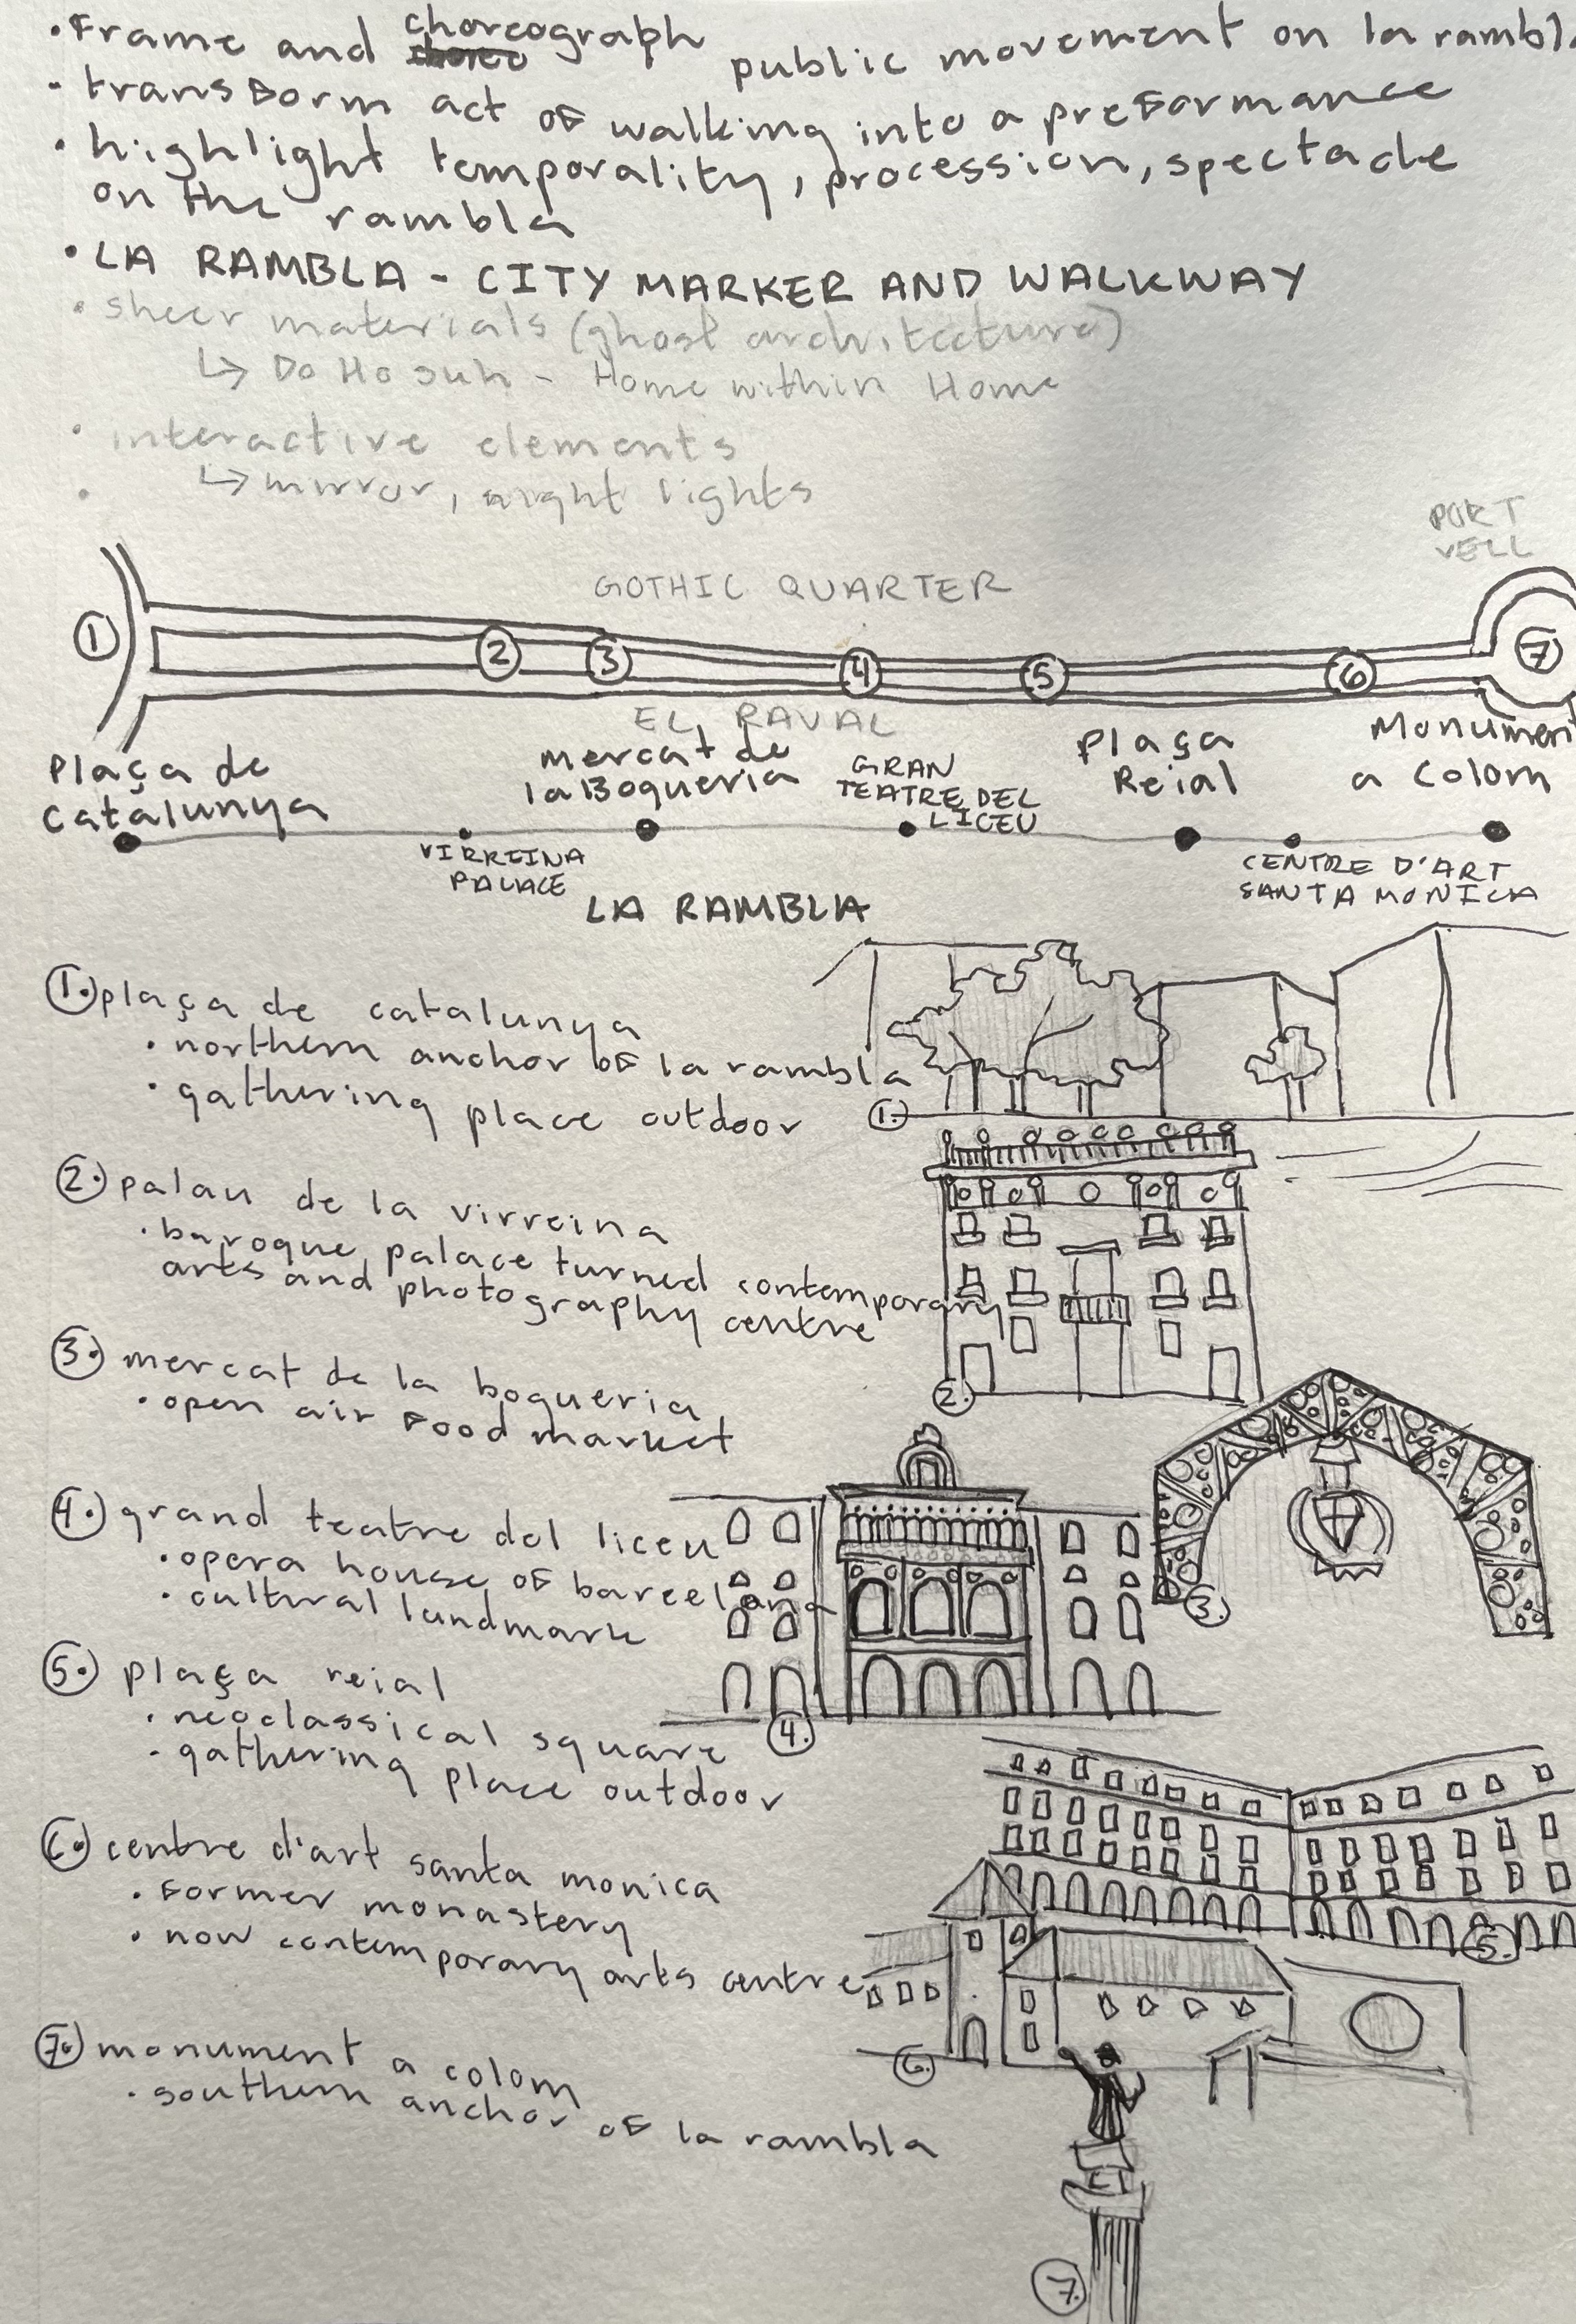 • Frame and choreograph public movement on la rambla
• transform act of walking into a preformance
• highlight temporality, procession, spectacle
on the rambla
• LA RAMBLA - CITY MARKER AND WALKWAY
• sheer materials (ghost architecture)
↳ Do Ho suh - Home within Home
• interactive elements
• ↳ mirror, night lights
PORT
VELL
GOTHIC QUARTER
1 2 3 4 5 6 7
EL RAVAL
Plaça de
Catalunya
mercat de
la Boqueria
GRAN
TEATRE DEL
LICEU
Plaça
Reial
Monument
a Colom
VIRREINA
PALACE
CENTRE D'ART
SANTA MONICA
LA RAMBLA
1. plaça de catalunya
• northern anchor of la rambla
• gathering place outdoor
1.
2. palau de la virreina
• baroque palace turned contemporary
arts and photography centre
2.
3. mercat de la boqueria
• open air food market
3.
4. grand teatre del liceu
• opera house of barcelona
• cultural landmark
4.
5. plaça reial
• neoclassical square
• gathering place outdoor
5.
6. centre d'art santa monica
• former monastery
• now contemporary arts centre
6.
7. monument a colom
• southern anchor of la rambla
7.